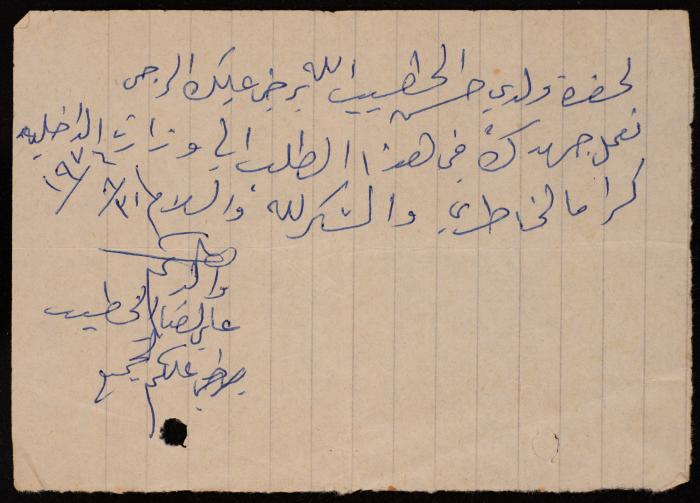 لحضرة ولدي حسن الخطيب الله يرضى عليك الرجى
تعمل جهدك في هذا الطلب الى وزارت الداخليه
كراما لخاطري والشكر لله والسلام ٣١/٨/١٩٧٤
والدكم
الخطيب
عليكم الجميع